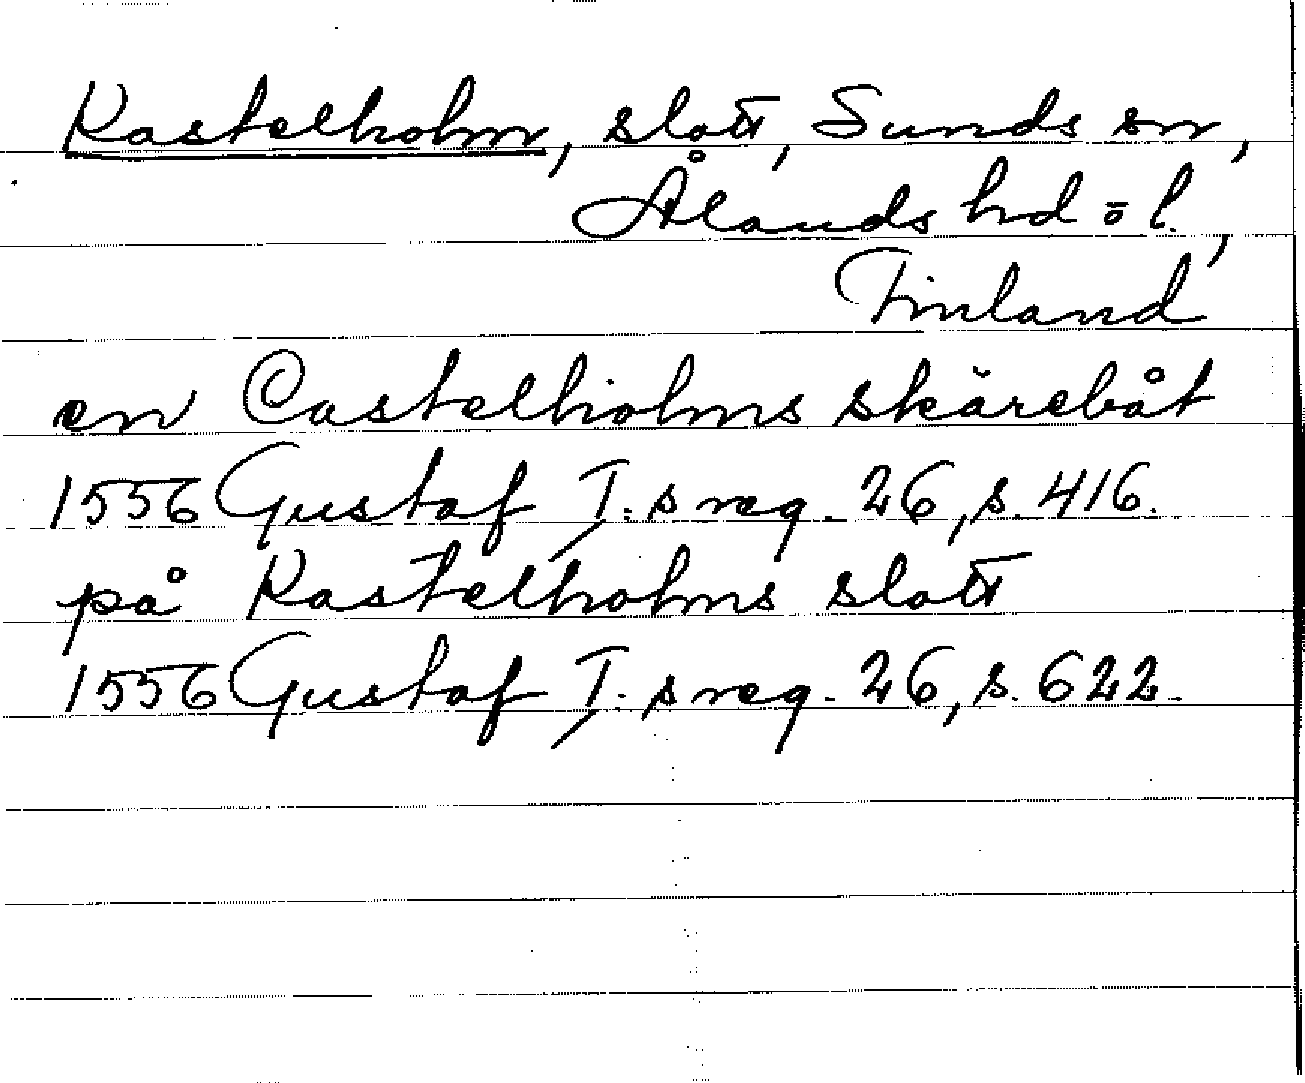 Kastelholm, slott, Sunds sn,
Ålands hd o l.,
Finland
en Castelholms skärebåt
1556 Gustaf I:s reg. 26, s. 416.
på Kastelholms slott
1556 Gustaf I:s reg. 26, s. 622.